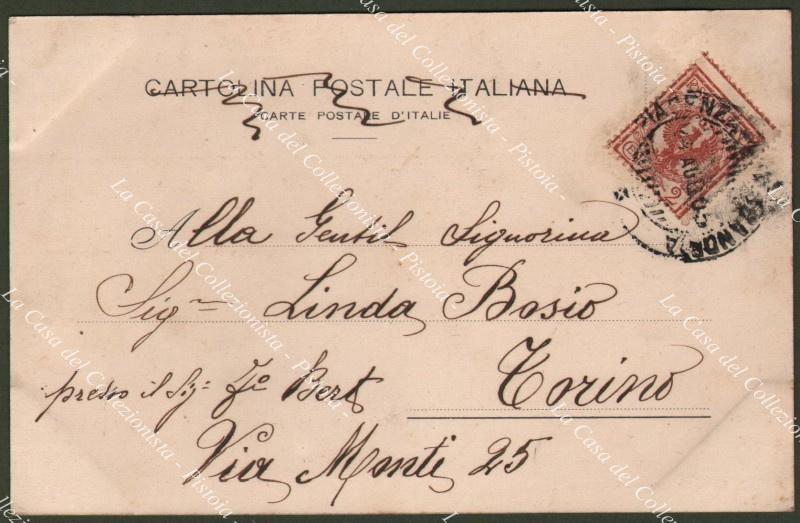 CARTOLINA POSTALE ITALIANA
CARTE POSTALE D'ITALIE
Alla Gentil Signorina
Sig.na Linda Bosio
presso il Sig. Bert
Torino
Via Monti 25
La Casa del Collezionista - Pistoia -